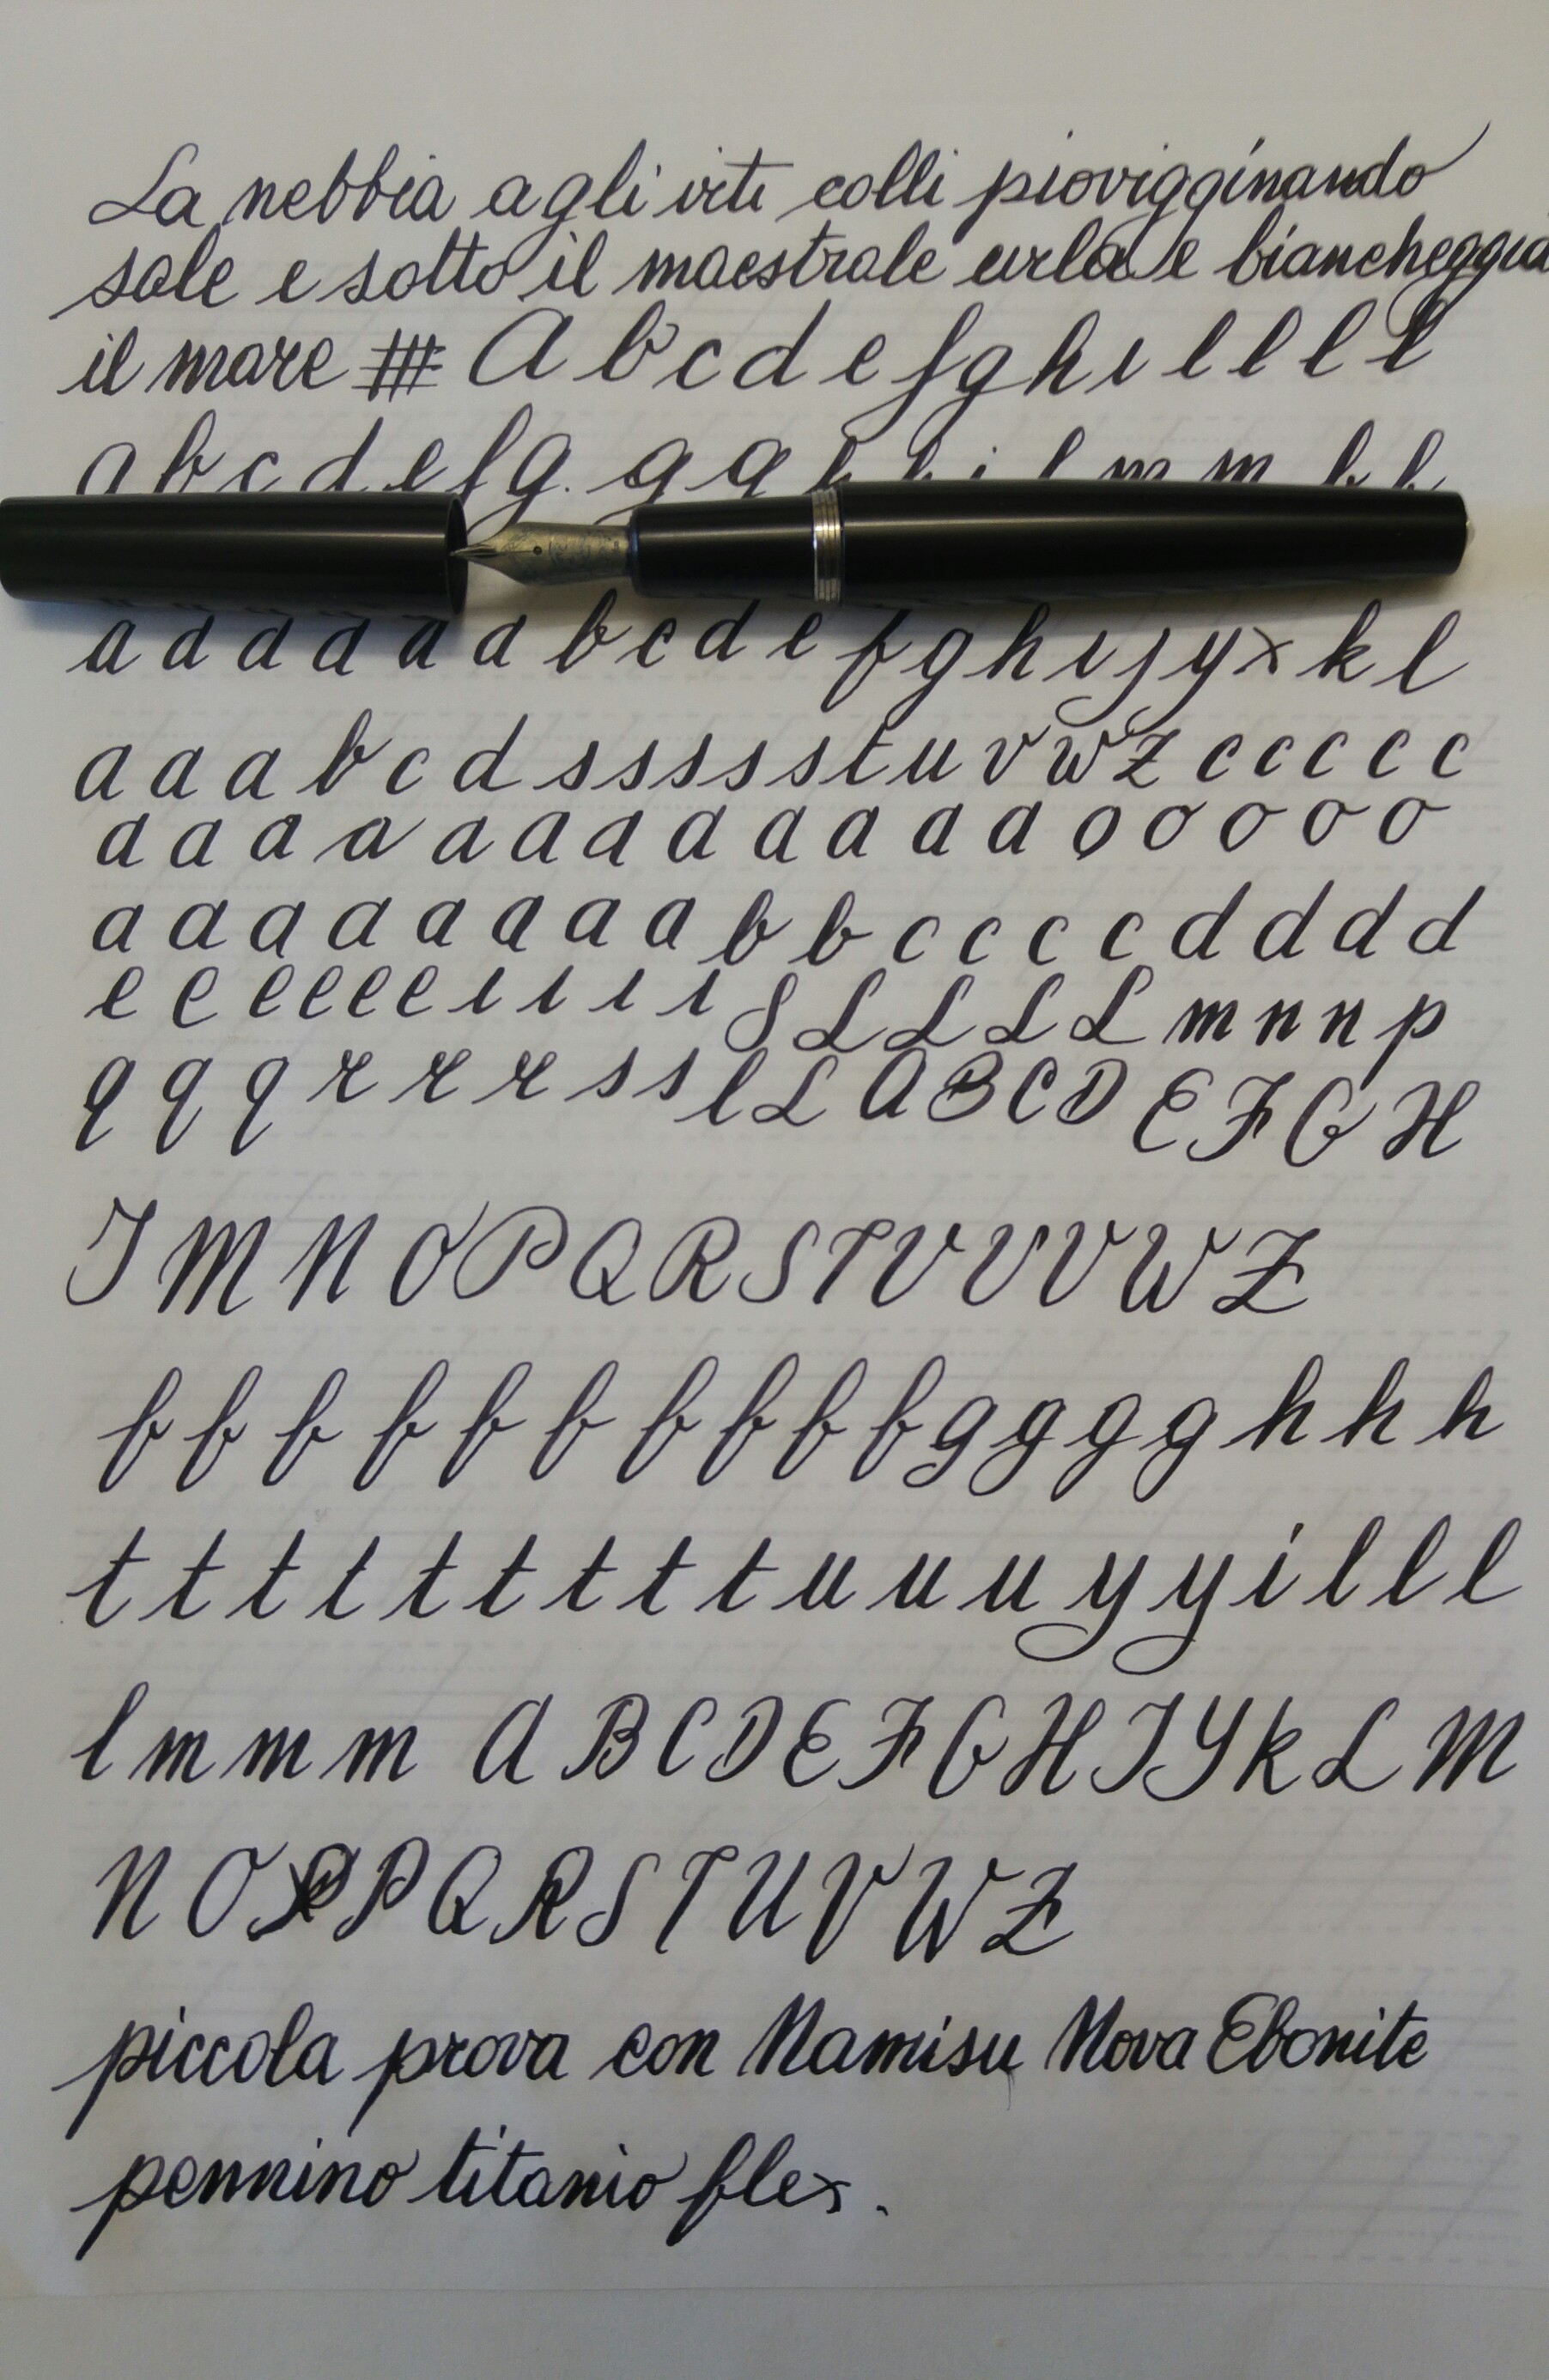 La nebbia agli irti colli piovigginando
sale e sotto il maestrale urla e biancheggia
il mare # A b c d e f g h i l l l l l
a b c d e f g . g g h h i l m m b b
a a a a a a b c d e f g h i j y x k l
a a a b c d s s s s s t u v w z c c c c c
a a a a a a a a a a a a o o o o o
a a a a a a a a b b c c c c d d d d
e e e e e e i i i i S L L L L m n n p
q q q r r r s s l L A B C D E F G H
I M N O P Q R S T V V V W Z
f f f f f f f f f f g g g g h h h
t t t t t t t t t u u u y y i l l l
l m m m A B C D E F G H I Y k L M
N O P Q R S T U V W Z
piccola prova con Namisu Nova Ebonite
pennino titanio flex .